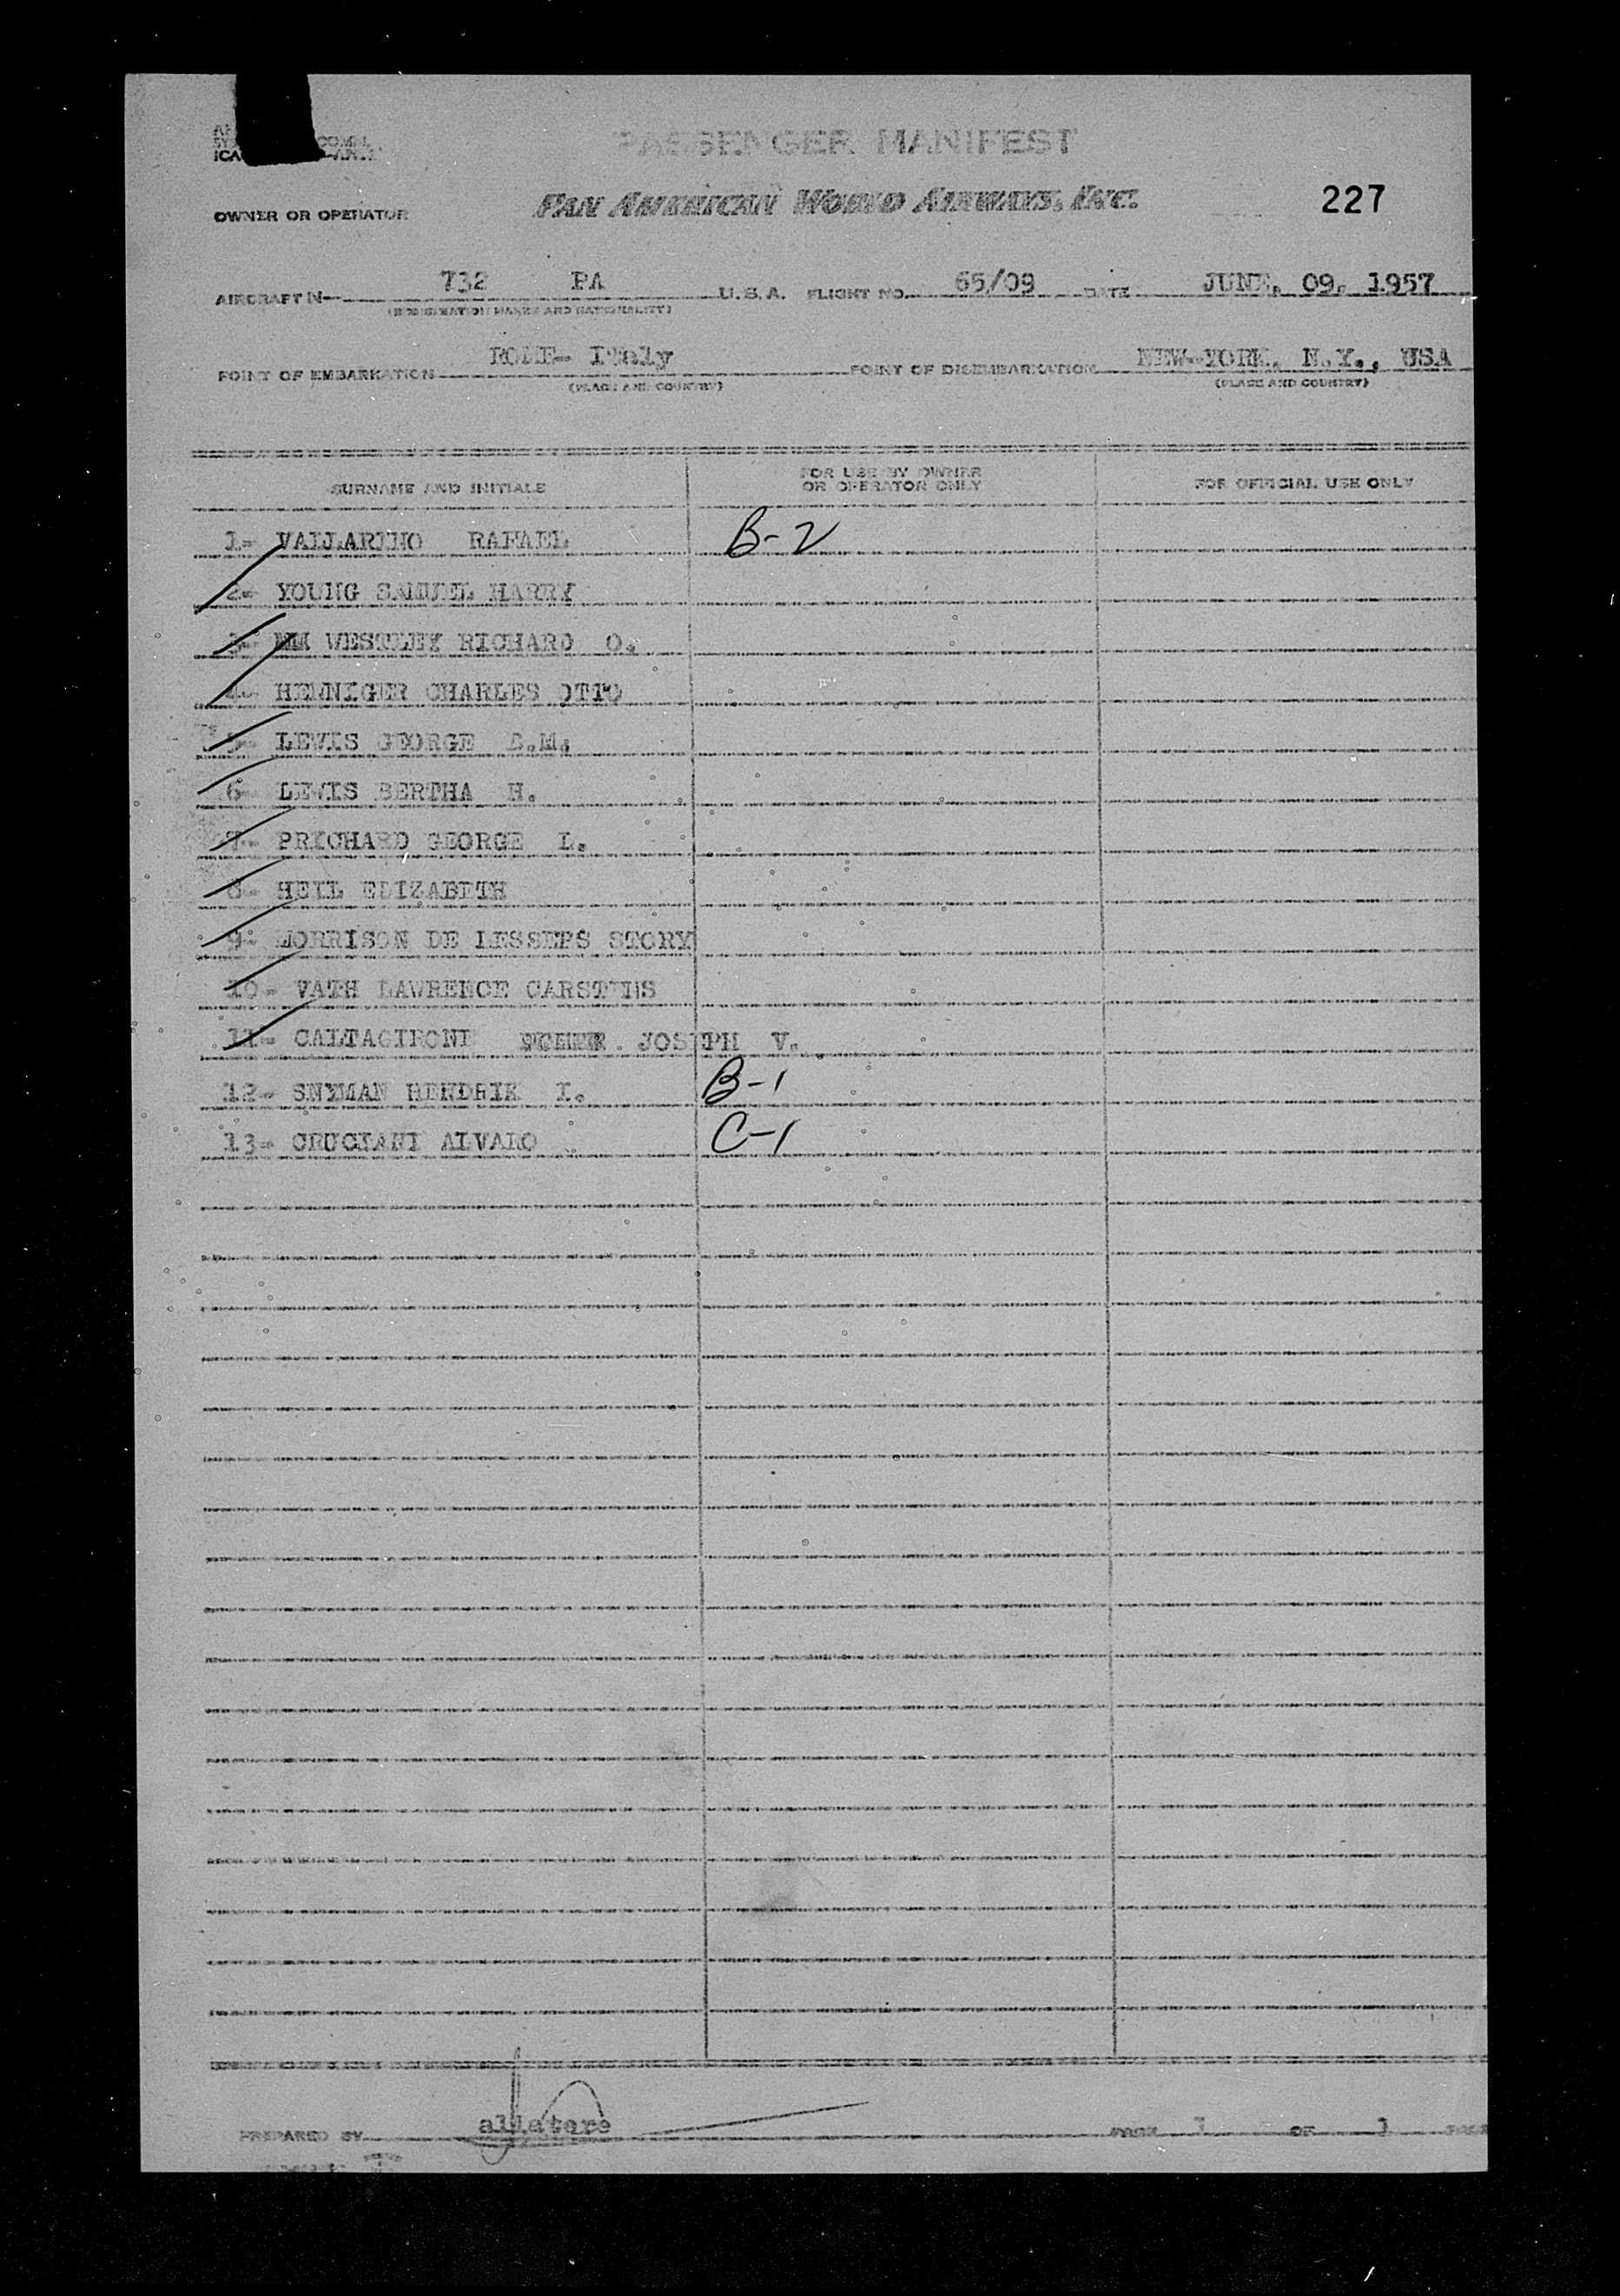 PASSENGER MANIFEST
OWNER OR OPERATOR PAN AMERICAN WORLD AIRWAYS, INC. 227
AIRCRAFT N— 732 PA U.S.A. FLIGHT NO. 65/09 DATE JUNE, 09, 1957
(REGISTRATION MARKS AND NATIONALITY)
POINT OF EMBARKATION ROME- Italy POINT OF DISEMBARKATION NEW-YORK, N.Y., USA
(PLACE AND COUNTRY) (PLACE AND COUNTRY)
SURNAME AND INITIALS FOR USE BY OWNER OR OPERATOR ONLY FOR OFFICIAL USE ONLY
1- VALLARINO RAFAEL B-2
2- YOUNG SAMUEL HARRY
3- WESTLEY RICHARD O.
4- HENNIGER CHARLES OTTO
5- LEWIS GEORGE E.M.
6- LEWIS BERTHA H.
7- PRICHARD GEORGE L.
8- HEIL ELIZABETH
9- MORRISON DE LESSEPS STORY
10- VATH LAWRENCE CARSTENS
11- CALTAGIRONI JOSEPH V.
12- SNYMAN HENDRIK I. B-1
13- CRUCIANI ALVARO C-1
PREPARED BY PAGE 1 OF 1